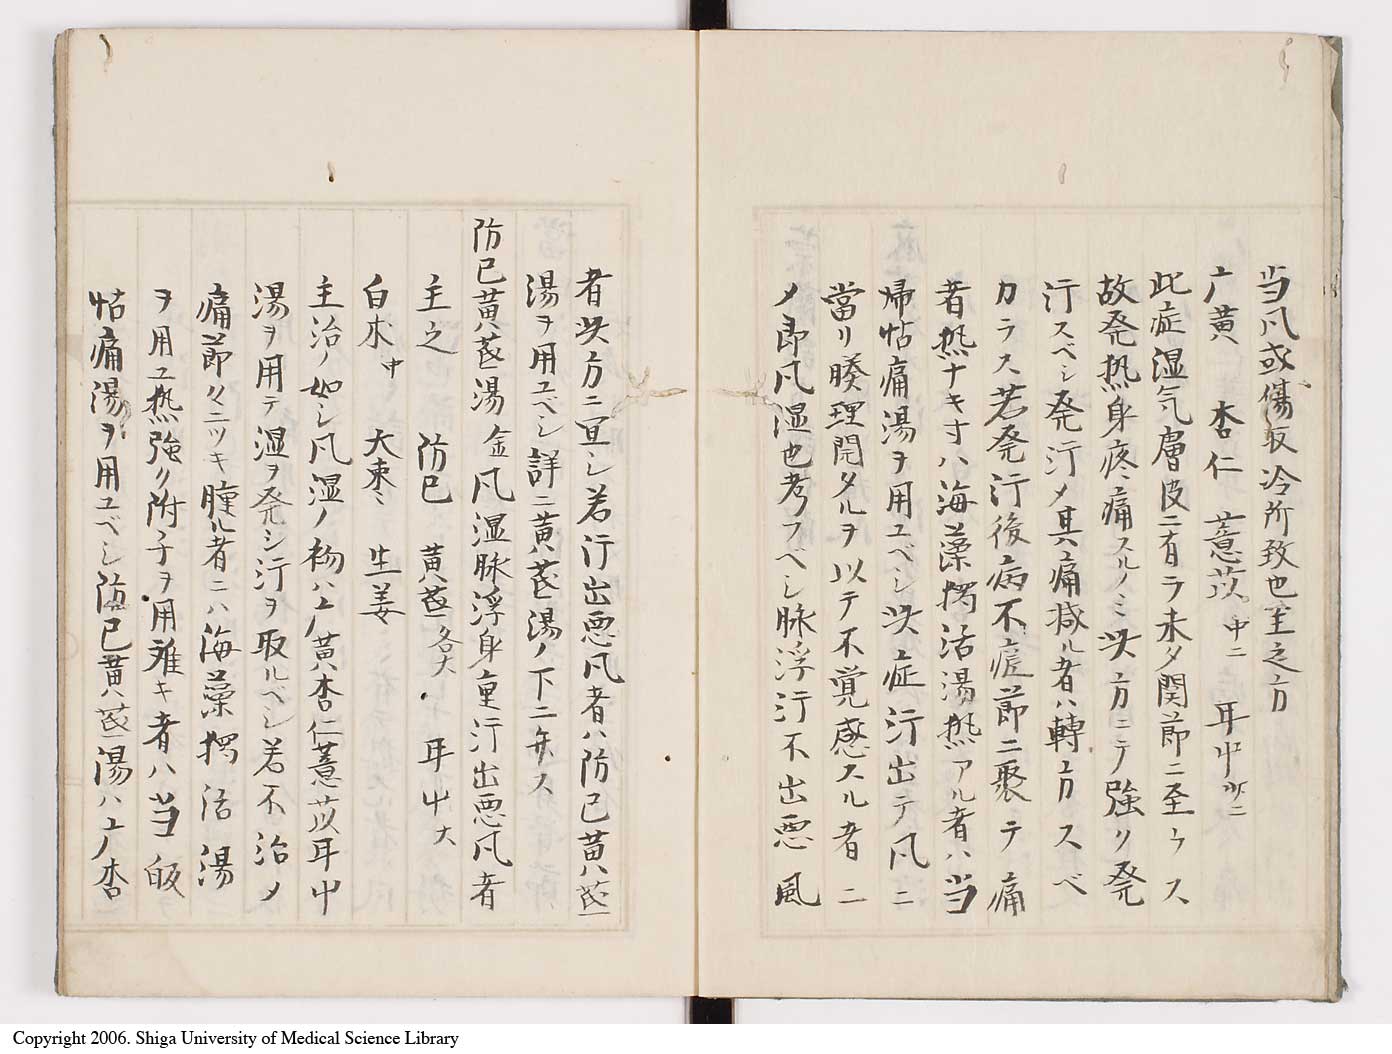 当凡或傷取冷所致也主之方
广黄 杏仁 薏苡 中ニ 耳中 少ニ
此症湿気膚皮ニ有ラ未タ関節ニ至ラス
故発熱身疼痛スルノミ此方ニテ強ク発
汗スベシ発汗メ其痛減ル者ハ轉方スベ
カラス若発汗後病不痊節ニ聚テ痛
者熱ナキ寸ハ海藻獨活湯熱アル者ハ当
帰帖痛湯ヲ用ユベシ此症汗出テ凡ニ
當リ腠理開タルヲ以テ不覚感スル者ニ
メ即凡湿也考フベシ脉浮汗不出悪風
者此方ニ宜シ若汗出悪凡者ハ防已黄芪
湯ヲ用ユベシ詳ニ黄芪湯ノ下ニ弁ス
防已黄芪湯 金 凡湿脉浮身重汗出悪凡者
主之 防已 黄芪 各大 耳中 大
白朮 中 大棗ミ 生姜
主治ノ如シ凡湿ノ初ハ广黄杏仁薏苡耳中
湯ヲ用テ湿ヲ発シ汗ヲ取ルベシ若不治メ
痛節々ニツキ腫ル者ニハ海藻獨活湯
ヲ用ユ熱強ク附子ヲ用難キ者ハ当皈
帖痛湯ヲ用ユベシ防已黄芪湯ハ广杏
Copyright 2006. Shiga University of Medical Science Library